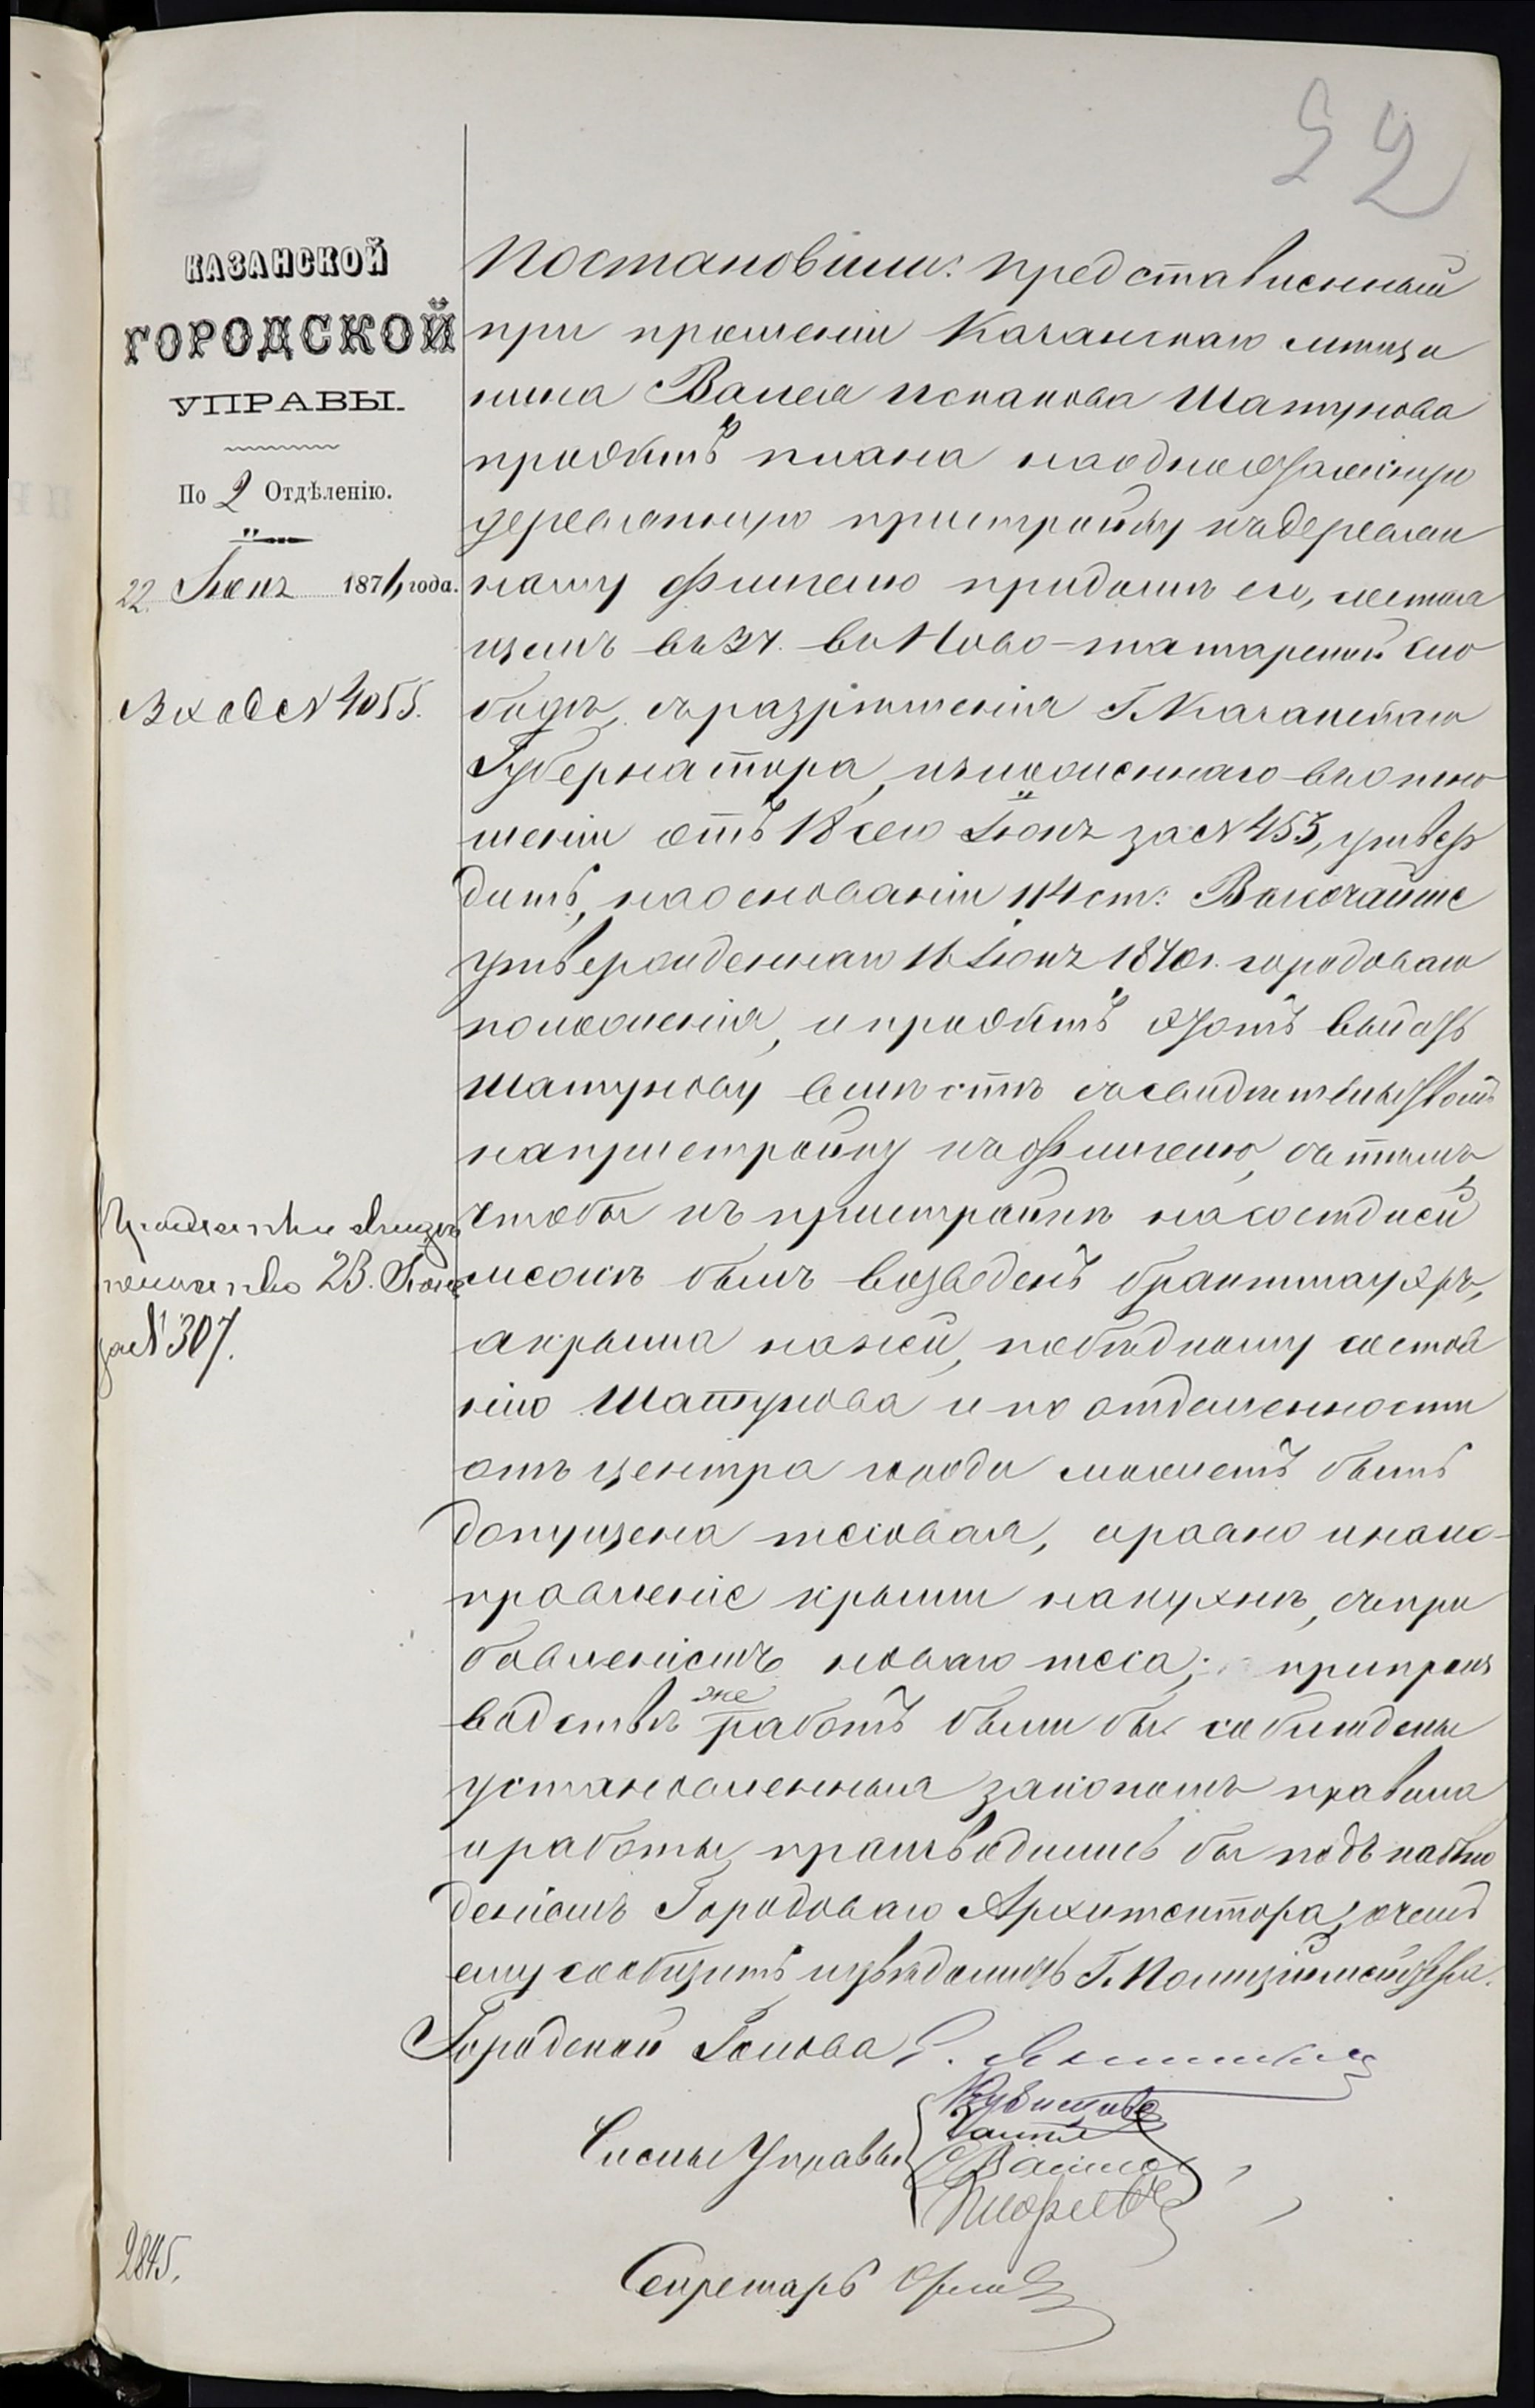 52
КАЗАНСКОЙ
ГОРОДСКОЙ
УПРАВЫ.
По 2 Отдѣленію.
22 Іюня 1871 года.
Вход № 4055.
Постановили: представленный
при прошеніи Казанскаго мѣща
нина Валея Исхакова Шатунова
проэктъ плана на одноэтажную
деревянную пристройку къ деревян
ному флигелю при домѣ его, состоя
щемъ въ 3 ч. въ Ново-татарской сло
бодѣ, съ разрѣшенія Г. Казанскаго
Губернатора, изложеннаго въ отно
шеніи отъ 18 сего Іюня за № 453, утвер
дить, на основаніи 114 ст: Высочайше
утвержденнаго 16 Іюня 1870 г. городоваго
положенія, и проэктъ этотъ выдать
Шатунову вмѣстѣ съ свидѣтельствомъ
на пристройку къ флигелю, съ тѣмъ,
чтобы къ пристройкѣ на сосѣдней
межѣ былъ возведенъ брантмауэръ,
а крыша на ней, по бѣдному состоя
нію Шатунова и по отдаленности
отъ центра города можетъ быть
допущена тесовая, и равно и на ис-
правленіе крыши на кухнѣ, съ при
бавленіемъ новаго теса; при произ
водствѣ же работъ были бы соблюдены
установленныя закономъ правила
и работы производились бы подъ наблю
деніемъ Городоваго Архитектора, о чемъ
ему сообщить и увѣдомить Г. Полиціймейстера.
23. Іюня
за № 307.
Городской Голова
Члены Управы
Секретарь
2845.